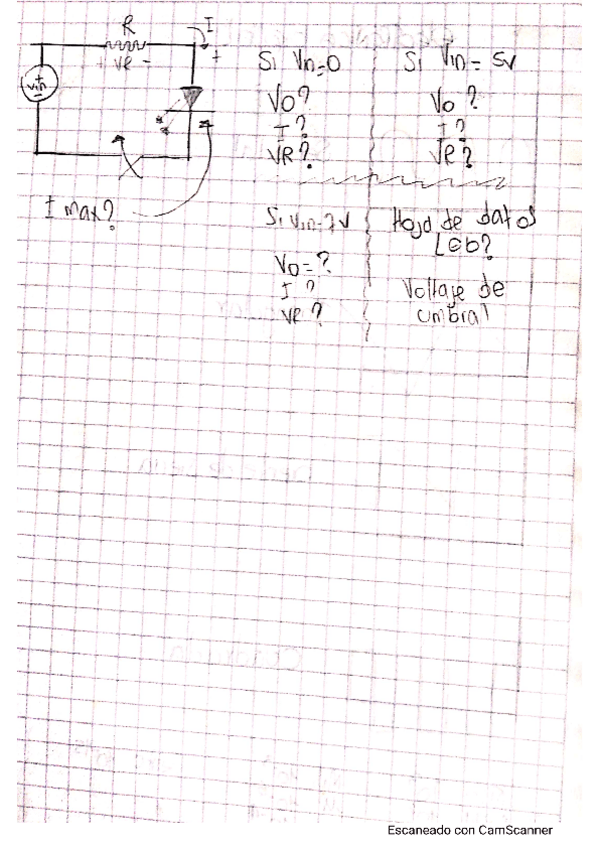 R
I
+ VR -
+
Vin
I max?
Si Vin=0
Vo?
I?
VR?
Si Vin= 5V
Vo?
I?
VR?
Si Vin=7V
Vo=?
I?
VR?
Hoja de datos
LED?
Voltaje de
umbral
Escaneado con CamScanner